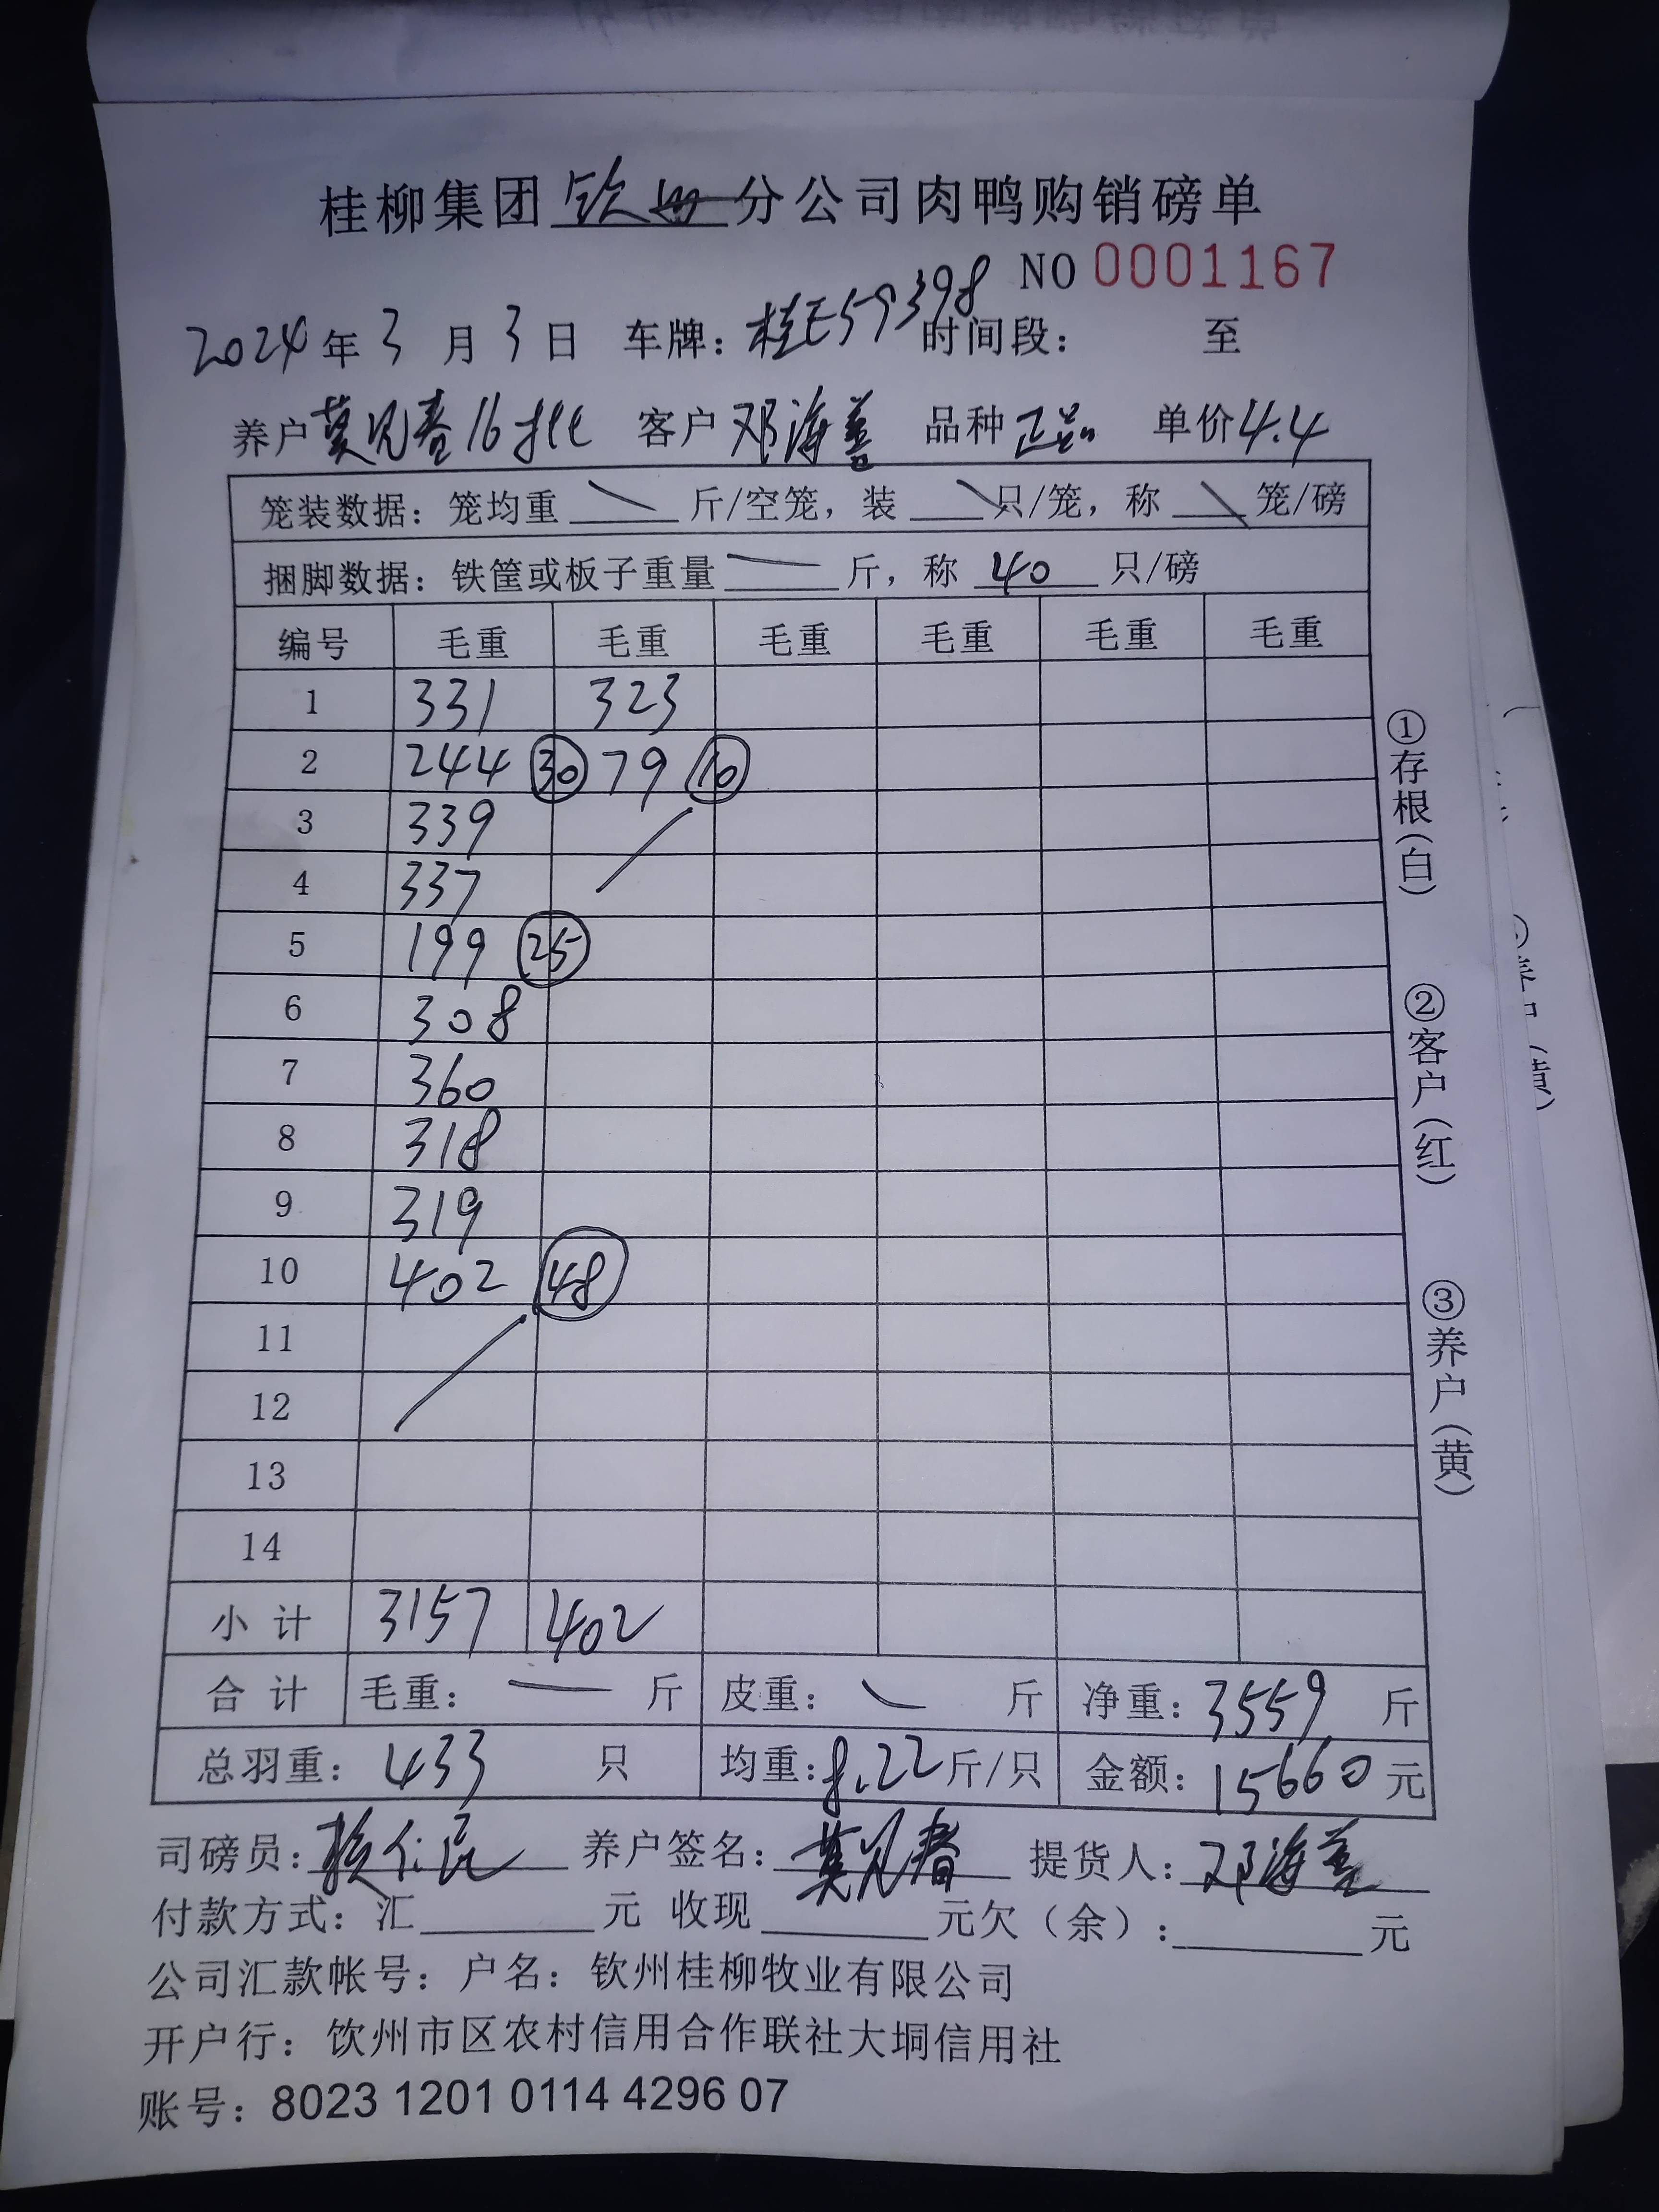 桂柳集团钦州分公司肉鸭购销磅单
NO 0001167
2024年3月3日 车牌：桂E59398 时间段： 至
养户莫见春16批 客户邓海善 品种正品 单价4.4
笼装数据：笼均重 斤/空笼，装 只/笼，称 笼/磅
捆脚数据：铁筐或板子重量 斤，称 40 只/磅
编号 毛重 毛重 毛重 毛重 毛重 毛重
1 331 323
2 244 30 79 10
3 339
4 337
5 199 25
6 308
7 360
8 318
9 319
10 402 48
11
12
13
14
小计 3157 402
合计 毛重： 斤 皮重： 斤 净重：3559 斤
总羽重：433 只 均重：8.22斤/只 金额：15660元
司磅员： 养户签名：莫见春 提货人：邓海善
付款方式：汇 元 收现 元欠（余）： 元
公司汇款帐号：户名：钦州桂柳牧业有限公司
开户行：饮州市区农村信用合作联社大垌信用社
账号：8023 1201 0114 4296 07
①存根（白）
②客户（红）
③养户（黄）